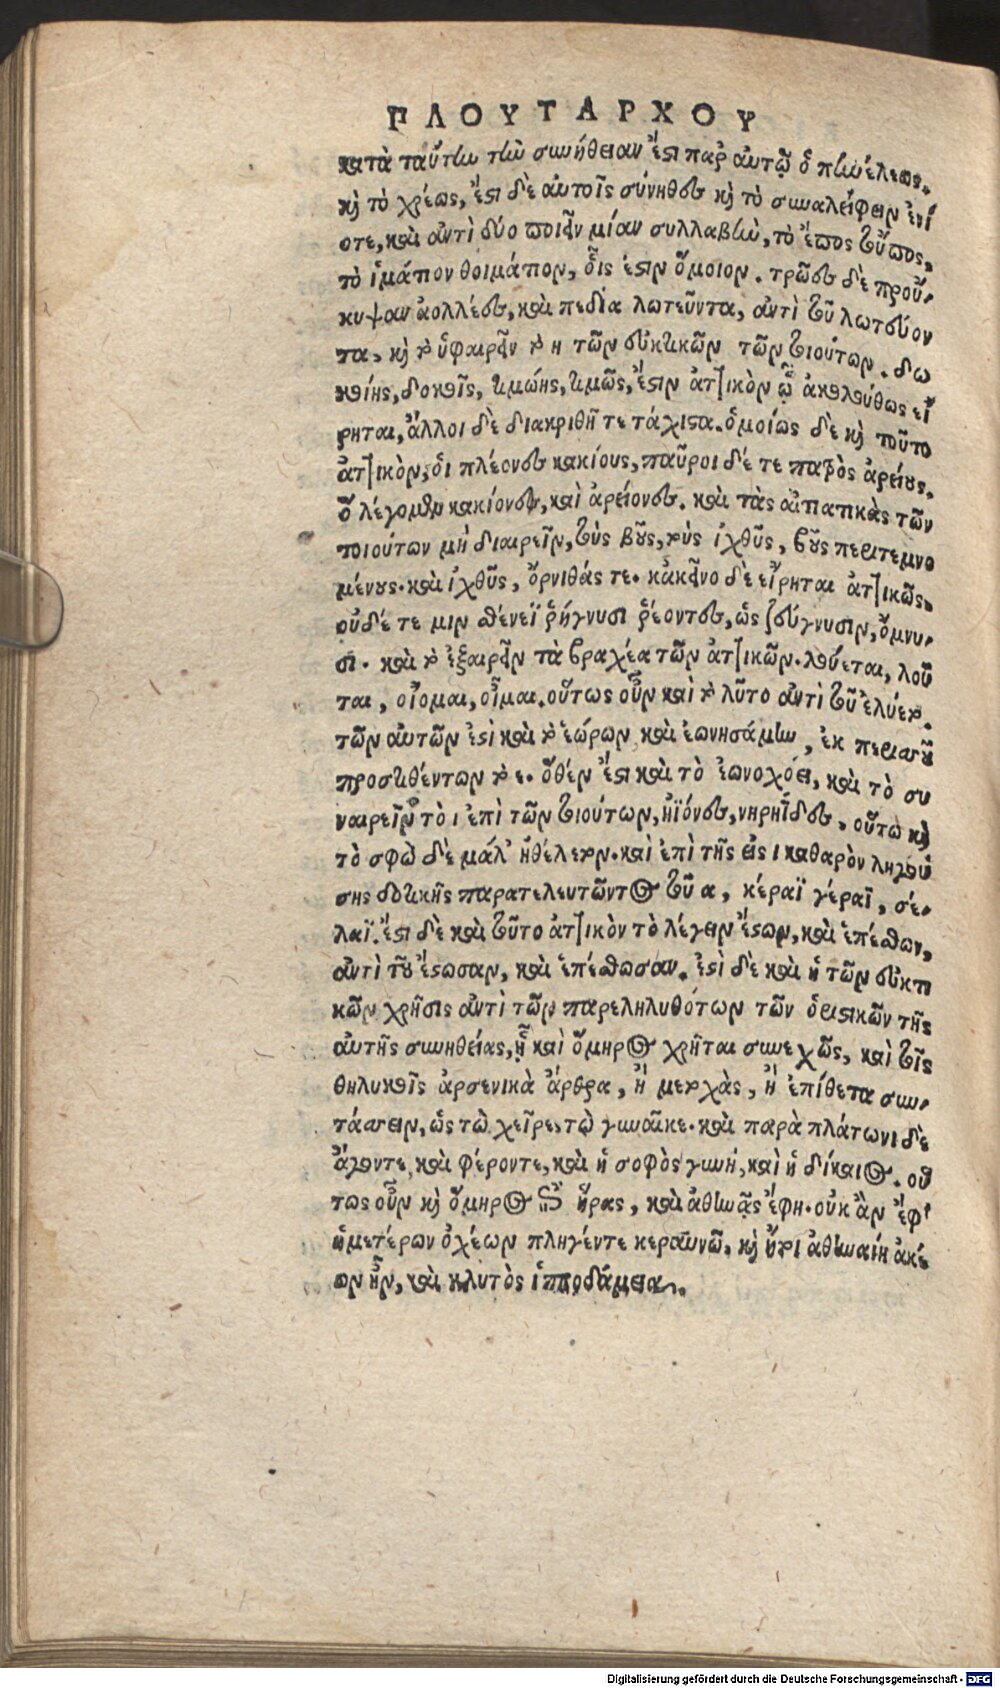 ΠΛΟΥΤΑΡΧΟΥ
κατὰ ταύτην τὴν συνήθειαν ἔστι παρ' αὐτῷ ὁ πηνέλεως,
καὶ τὸ χρέως, ἔστι δὲ αὐτοῖς σύνηθες καὶ τὸ συναλείφειν ἐνί
οτε, καὶ ἀντὶ δύο ποιεῖν μίαν συλλαβὴν, τὸ ἔπος τοὖπος,
τὸ ἱμάτιον θοιμάτιον, οἷς ἐστιν ὅμοιον. τρῶες δὲ προὔ-
κυψαν ἀολλέες, καὶ πεδία λωτεῦντα, ἀντὶ τοῦ λωτεύον
τα, καὶ τὸ ὑφαιρεῖν τὸ η τῶν εὐκτικῶν τῶν τοιούτων. δο
κοίης, δοκοῖς, τιμώης, τιμῶς, ἔστιν ἀττικὸν ᾧ ἀκολούθως εἴ
ρηται, ἄλλοι δὲ διακριθῆτε τάχιστα. ὁμοίως δὲ καὶ τοῦτο
ἀττικὸν, οἱ πλέονες κακίους, παῦροι δέ τε πατρὸς ἀρείους.
ὃ λέγομεν κακίονες, καὶ ἀρείονες. καὶ τὰς αἰτιατικὰς τῶν
τοιούτων μὴ διαιρεῖν, τοὺς βοῦς, τοὺς ἰχθῦς, βοῦς περιτεμνο
μένους. καὶ ἰχθῦς, ὄρνιθάς τε. κἀκεῖνο δὲ εἴρηται ἀττικῶς.
οὐδέ τε μιν σθένεϊ ῥήγνυσι ῥέοντες, ὡς ζεύγνυσιν, ὄμνυ-
σι. καὶ τὸ ἐξαιρεῖν τὰ βραχέα τῶν ἀττικῶν. λούεται, λοῦ
ται, οἴομαι, οἶμαι. οὕτως οὖν καὶ τὸ λῦτο ἀντὶ τοῦ ἐλύετο.
τῶν αὐτῶν ἐστὶ καὶ τὸ ἑώρων καὶ ἐωνησάμην, ἐκ περισσοῦ
προστιθέντων τὸ ε. ὅθεν ἔστι καὶ τὸ ἐωνοχόει, καὶ τὸ συ
ναιρεῖν τὸ ι ἐπὶ τῶν τοιούτων, ἠϊόνες, νηρηΐδες, οὕτω καὶ
τὸ σφὼ δὲ μάλ' ἤθελετον. καὶ ἐπὶ τῆς εἰς ι καθαρὸν ληγού
σης δοτικῆς παρατελευτῶντος τοῦ α, κέραϊ γέραϊ, σέ-
λαϊ. ἔστι δὲ καὶ τοῦτο ἀττικὸν τὸ λέγειν ἔστων, καὶ ἐπέσθων,
ἀντὶ τοῦ ἔστωσαν, καὶ ἐπέσθωσαν. ἐστὶ δὲ καὶ ἡ τῶν εὐκτι
κῶν χρῆσις ἀντὶ τῶν παρεληλυθότων τῶν ὁριστικῶν τῆς
αὐτῆς συνηθείας, ᾗ καὶ ὅμηρος χρῆται συνεχῶς, καὶ τοῖς
θηλυκοῖς ἀρσενικὰ ἄρθρα, ἢ μετοχὰς, ἢ ἐπίθετα συν-
τάσσειν, ὡς τὼ χεῖρε, τὼ γυναῖκε. καὶ παρὰ πλάτωνι δὲ
ἄγοντε, καὶ φέροντε, καὶ ἡ σοφὸς γυνὴ, καὶ ἡ δίκαιος. οὕ
τως οὖν καὶ ὅμηρος ἥρας, καὶ ἀθηνᾶς ἔφη. οὐκ ἂν ἐφ'
ἡμετέρων ὀχέων πληγέντε κεραυνῷ, καὶ ἤτοι ἀθηναίη ἀκέ
ων ἦν, καὶ κλυτὸς ἱπποδάμεια.
Digitalisierung gefördert durch die Deutsche Forschungsgemeinschaft - DFG